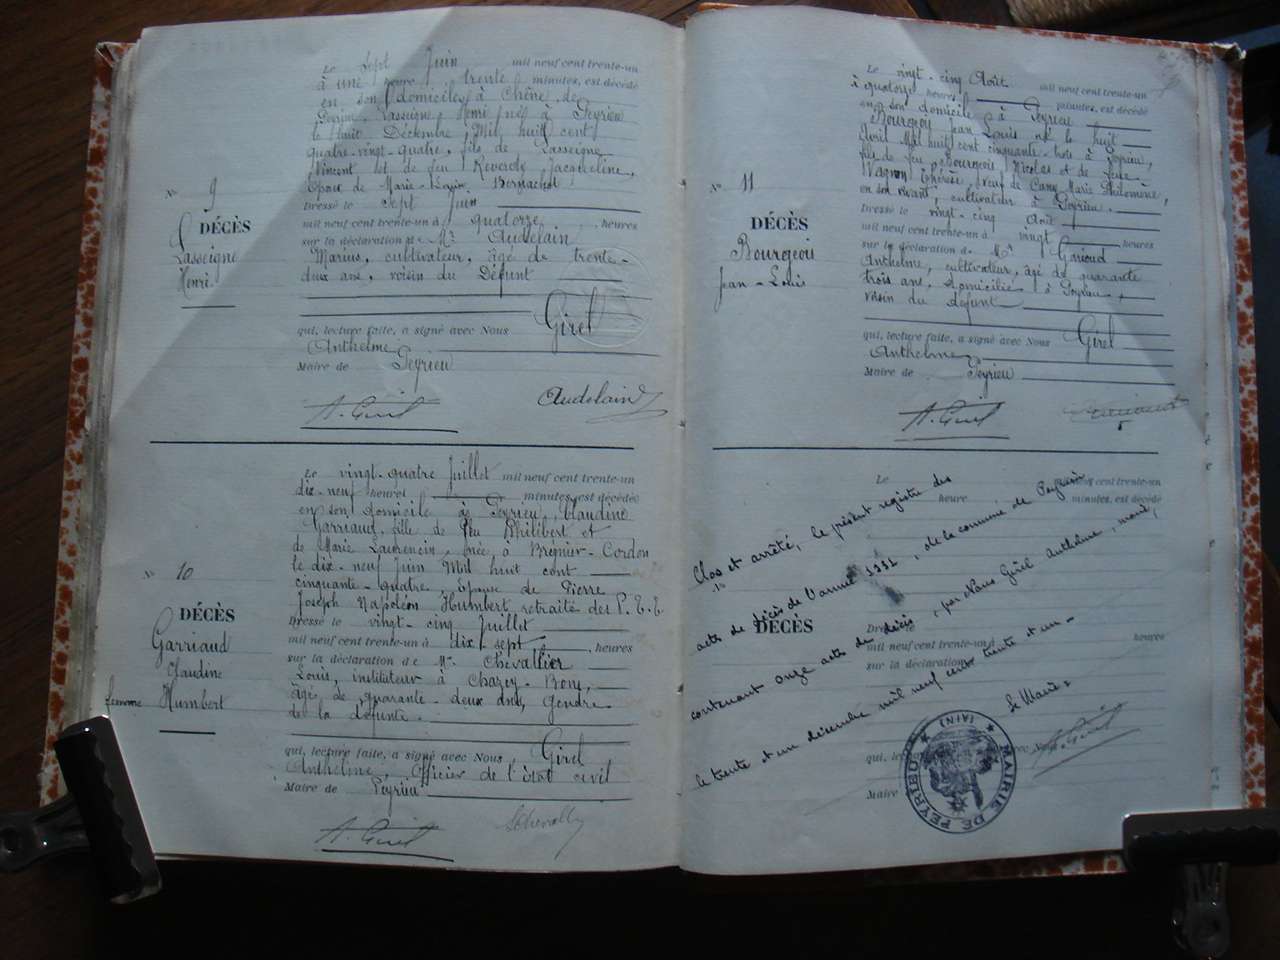 Le sept Juin mil neuf cent trente-un
à une heure trente minutes, est décédé
en son domicile à Chêne de
Lasseigne Henri né à Peyrieu
le huit Décembre Mil huit cent
quatre-vingt-quatre, fils de Lasseigne
Vincent et de feu Jacqueline,
Epoux de Marie
Dressé le sept Juin
mil neuf cent trente-un à quatorze heures
sur la déclaration de Mr Audelain
Marius, cultivateur, âgé de trente-
deux ans, voisin du Défunt
qui, lecture faite, a signé avec Nous Girel
Anthelme
Maire de Peyrieu
A. Girel
Audelain
N° 9
DÉCÈS
Lasseigne
Henri
Le vingt-quatre Juillet mil neuf cent trente-un
dix-neuf heures minutes, est décédée
en son domicile à Peyrieu, Claudine
Garriaud, fille de feu Philibert et
de Marie Laurencin, née à Brégnier-Cordon
le dix-neuf Juin Mil huit cent
cinquante-quatre Epouse de Pierre
Joseph Napoléon Humbert retraité des P.T.T
Dressé le vingt-cinq Juillet
mil neuf cent trente-un à dix sept heures
sur la déclaration de Mr Chevallier
Louis, instituteur à Charey-Bons,
âgé de quarante-deux ans, Gendre
de la défunte.
qui, lecture faite, a signé avec Nous, Girel
Anthelme, Officier de l'état civil
Maire de Peyrieu
A. Girel
N° 10
DÉCÈS
Garriaud
Claudine
femme Humbert
Le vingt-cinq Août mil neuf cent trente-un
à quatorze heures minutes, est décédé
en son domicile à Peyrieu
Bourgeois Jean Louis né le huit
Avril Mil huit cent cinquante-trois à Peyrieu,
fils de feu Bourgeois Nicolas et de feue
Thérèse, Marie Philomène,
en son vivant, cultivateur à Peyrieu.
Dressé le vingt-cinq Août
mil neuf cent trente-un à vingt heures
sur la déclaration de Mr
Anthelme, cultivateur, âgé de quarante
trois ans, domicilié à Peyrieu,
voisin du défunt
qui, lecture faite, a signé avec Nous Girel
Anthelme
Maire de Peyrieu
A. Girel
N° 11
DÉCÈS
Bourgeois
Jean-Louis
Le mil neuf cent trente-un
heure minutes, est décédé
DÉCÈS
Dressé le
mil neuf cent trente-un à heures
sur la déclaration
Maire
Clos et arrêté, le présent registre des
actes de décès de l'année 1931, de la commune de Peyrieu
contenant onze actes de décès, par Nous Girel Anthelme, maire,
le trente et un décembre mil neuf cent trente et un.
Le Maire,
A. Girel
MAIRIE DE PEYRIEU
(AIN)